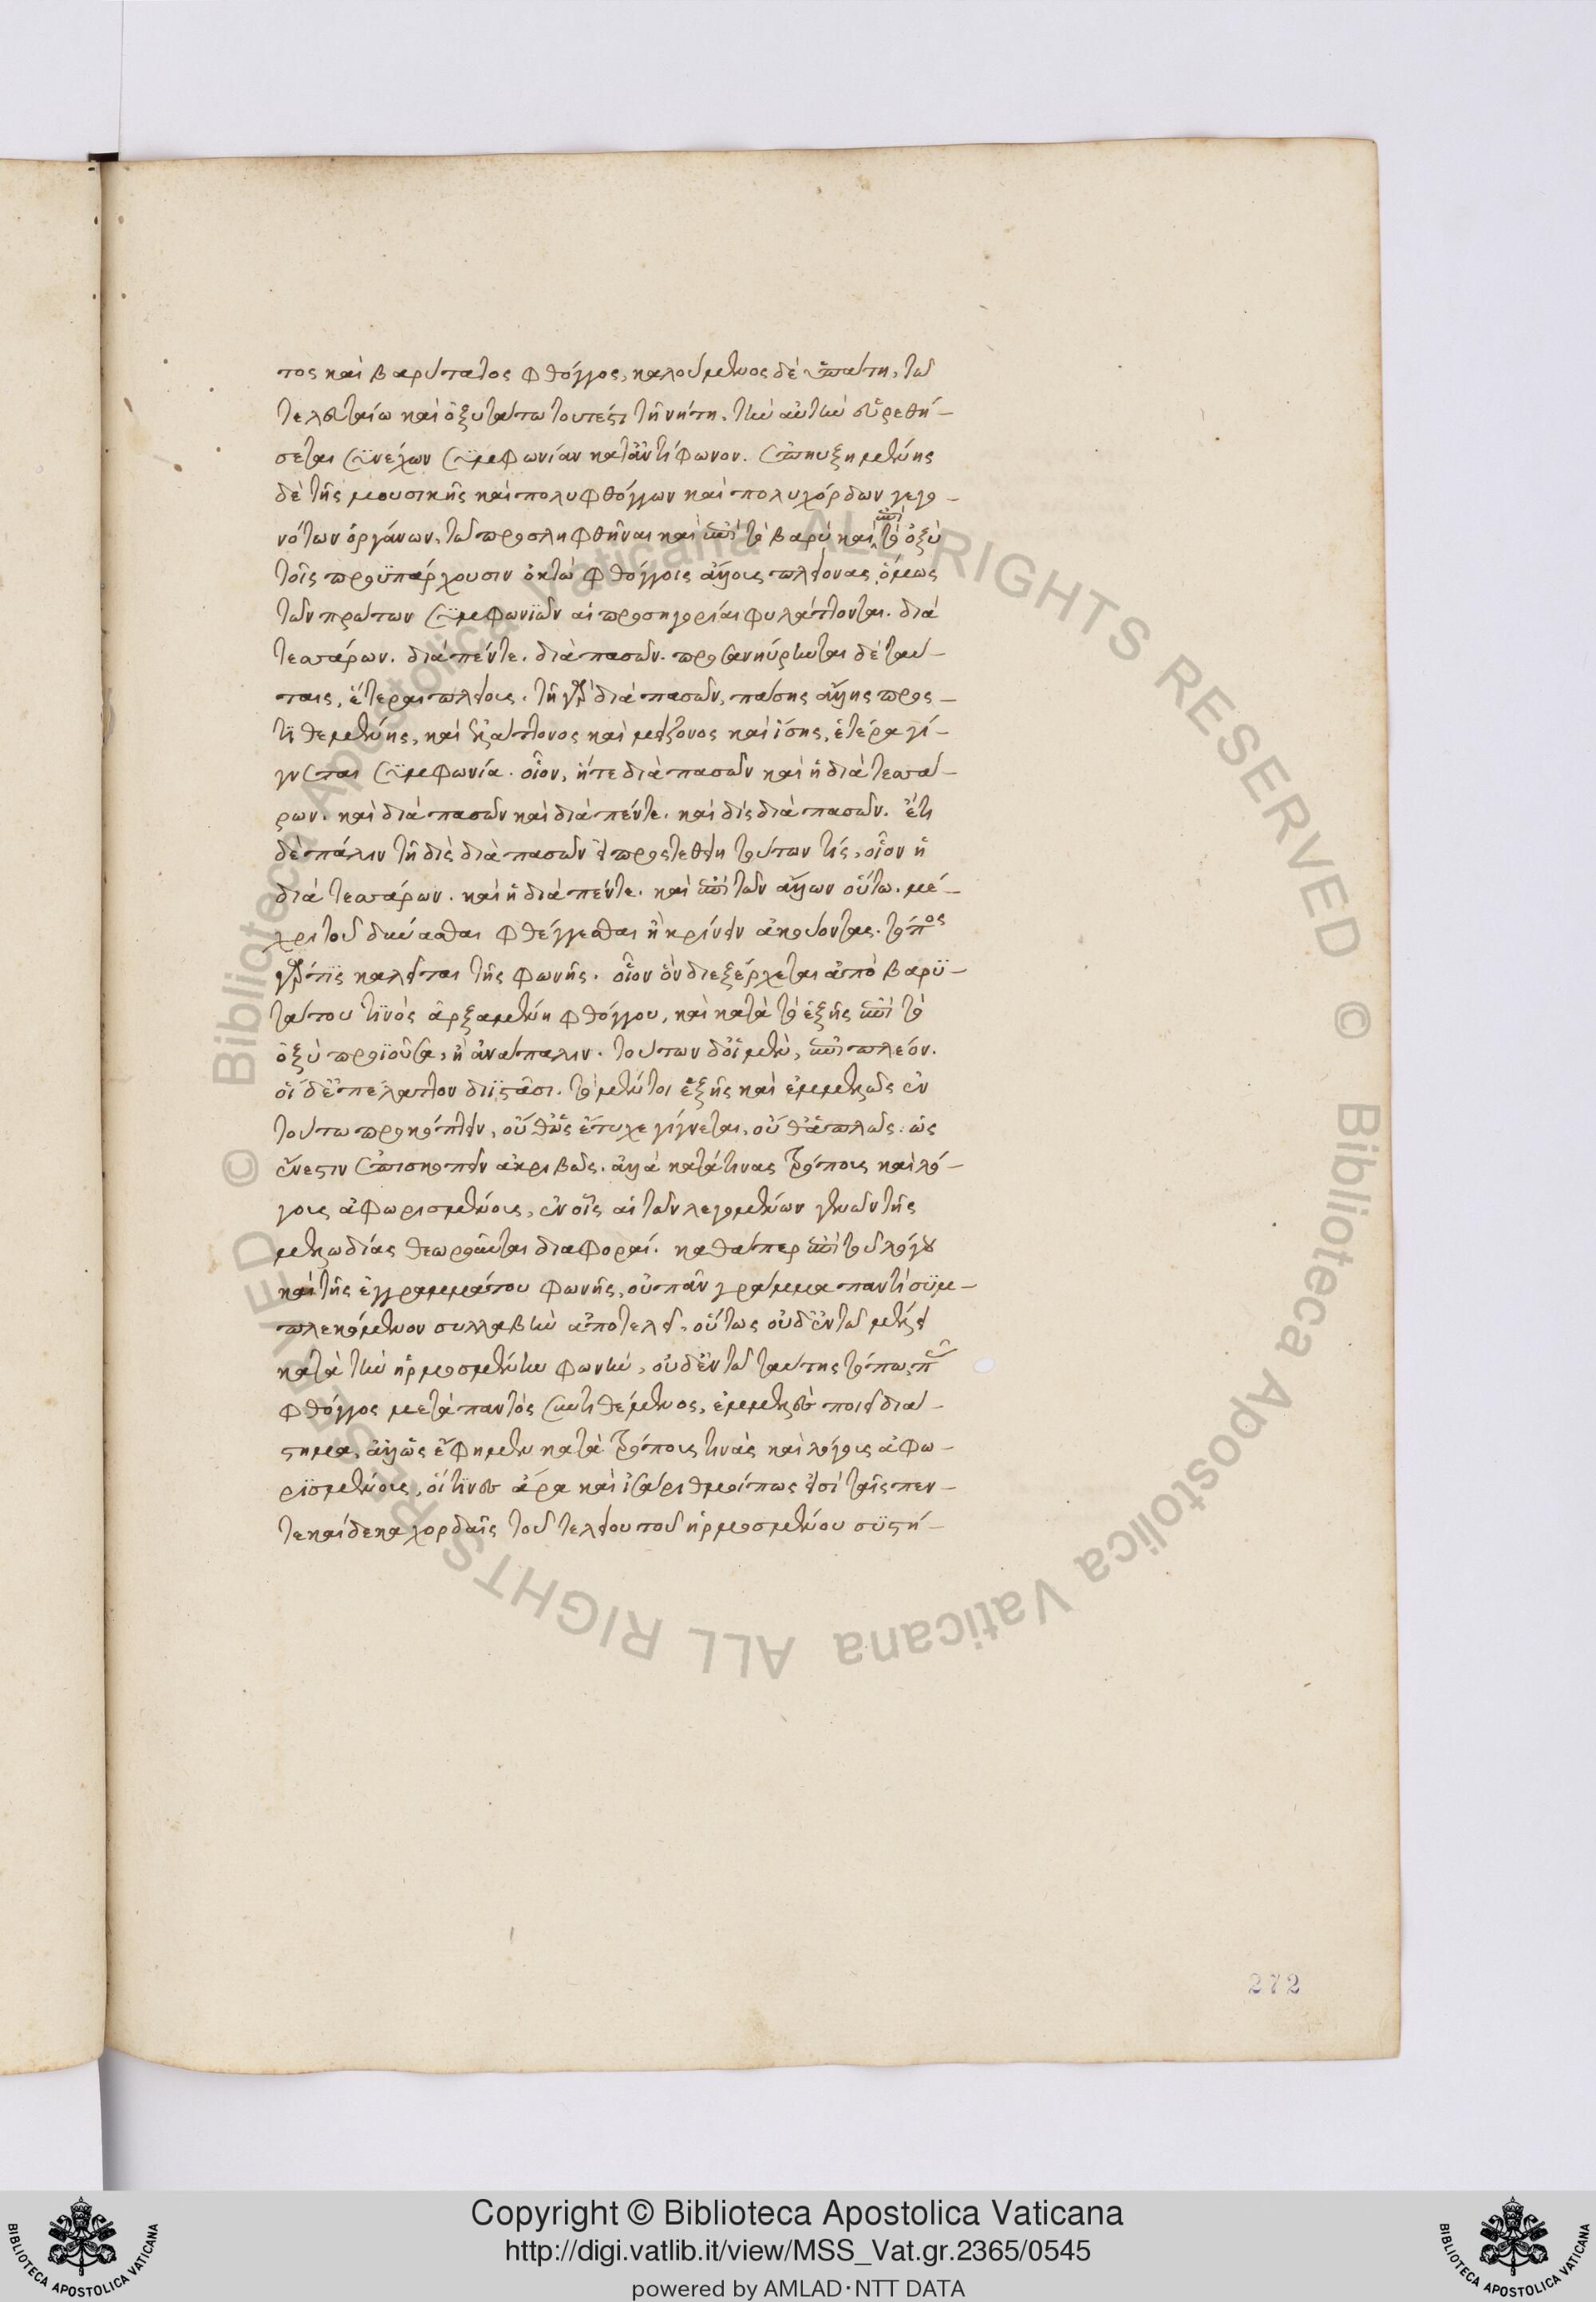 τος καὶ βαρύτατος φθόγγος, καλούμενος δὲ ὑπάτη, τῶ
τελευταίω καὶ ὀξυτάτω τουτέστι τῆ νήτη, τὴν αὐτὴν εὑρεθή-
σεται συνέχων συμφωνίαν κατ' ἀντίφωνον. ἐπηυξημένης
δὲ τῆς μουσικῆς καὶ πολυφθόγγων καὶ πολυχόρδων γεγο-
νότων ὀργάνων, τῶ προσληφθῆναι καὶ ἐπὶ τὸ βαρὺ καὶ ἐπὶ τὸ ὀξὺ
τοῖς προϋπάρχουσιν ὀκτὼ φθόγγοις ἄλλους πλείονας, ὅμως
τῶν πρώτων συμφωνιῶν αἱ προσηγορίαι φυλάττονται. διὰ
τεσσάρων. διὰ πέντε. διὰ πασῶν. προσανηύρηνται δὲ ταύ-
ταις, ἕτεραι πλείους. τῆ γὰρ διὰ πασῶν, πάσης ἄλλης προς-
τιθεμένης, καὶ ἐλάττονος καὶ μείζονος καὶ ἴσης, ἑτέρα γί-
γνεται συμφωνία. οἷον, ἥ τε διὰ πασῶν καὶ ἡ διὰ τεσσά-
ρων. καὶ διὰ πασῶν καὶ διὰ πέντε. καὶ δὶς διὰ πασῶν. ἔτι
δὲ πάλιν τῆ δὶς διὰ πασῶν εἰ προςτεθείη τούτων τίς, οἷον ἡ
διὰ τεσσάρων. καὶ ἡ διὰ πέντε. καὶ ἐπὶ τῶν ἄλλων οὕτω. μέ-
χρι τοῦ δύνασθαι φθέγγεσθαι ἢ κρίνειν ἀκούοντας. τόπος
γάρ τις καλεῖται τῆς φωνῆς. οἷον ὃν διεξέρχεται ἀπὸ βαρυ-
τάτου τινὸς ἀρξαμένη φθόγγου, καὶ κατὰ τὸ ἑξῆς ἐπὶ τὸ
ὀξὺ προϊοῦσα, ἢ ἀνάπαλιν. τούτων δ' οἱ μὲν, ἐπὶ πλέον.
οἱ δ' ἐπ' ἔλαττον διϊστᾶσι. τὸ μέντοι ἑξῆς καὶ ἐμμελῶς ἐν
τούτω προκόπτειν, οὔθ' ὡς ἔτυχε γίγνεται, οὔθ' ἁπλῶς. ὡς
ἔνεστιν ἐπισκοπεῖν ἀκριβῶς. ἀλλὰ κατά τινας τρόπους καὶ λό-
γους ἀφωρισμένους, ἐν οἷς αἱ τῶν λεγομένων γενῶν τῆς
μελωδίας θεωροῦνται διαφοραί. καθάπερ ἐπὶ τοῦ λόγου
καὶ τῆς ἐγγραμμάτου φωνῆς, οὐ πᾶν γράμμα παντὶ συμ-
πλεκόμενον συλλαβὴν ἀποτελεῖ, οὕτως οὐδ' ἐν τῶ μέλει
κατὰ τὴν ἡρμοσμένην φωνὴν, οὐδ' ἐν τῶ ταύτης τόπω, πᾶς
φθόγγος μετὰ παντὸς συντιθέμενος, ἐμμελὲς ποιεῖ διά-
στημα, ἀλλ' ὡς ἔφημεν κατὰ τρόπους τινὰς καὶ λόγους ἀφω-
ρισμένους, οἵτινες ἄρα καὶ ἰσάριθμοί πως εἰσὶ ταῖς πεν-
τεκαίδεκα χορδαῖς τοῦ τελείου τοῦ ἡρμοσμένου συστή-
272
Copyright © Biblioteca Apostolica Vaticana
http://digi.vatlib.it/view/MSS_Vat.gr.2365/0545
powered by AMLAD·NTT DATA
BIBLIOTECA APOSTOLICA VATICANA
BIBLIOTECA APOSTOLICA VATICANA
© Biblioteca Apostolica Vaticana ALL RIGHTS RESERVED © Biblioteca Apostolica Vaticana ALL RIGHTS RESERVED